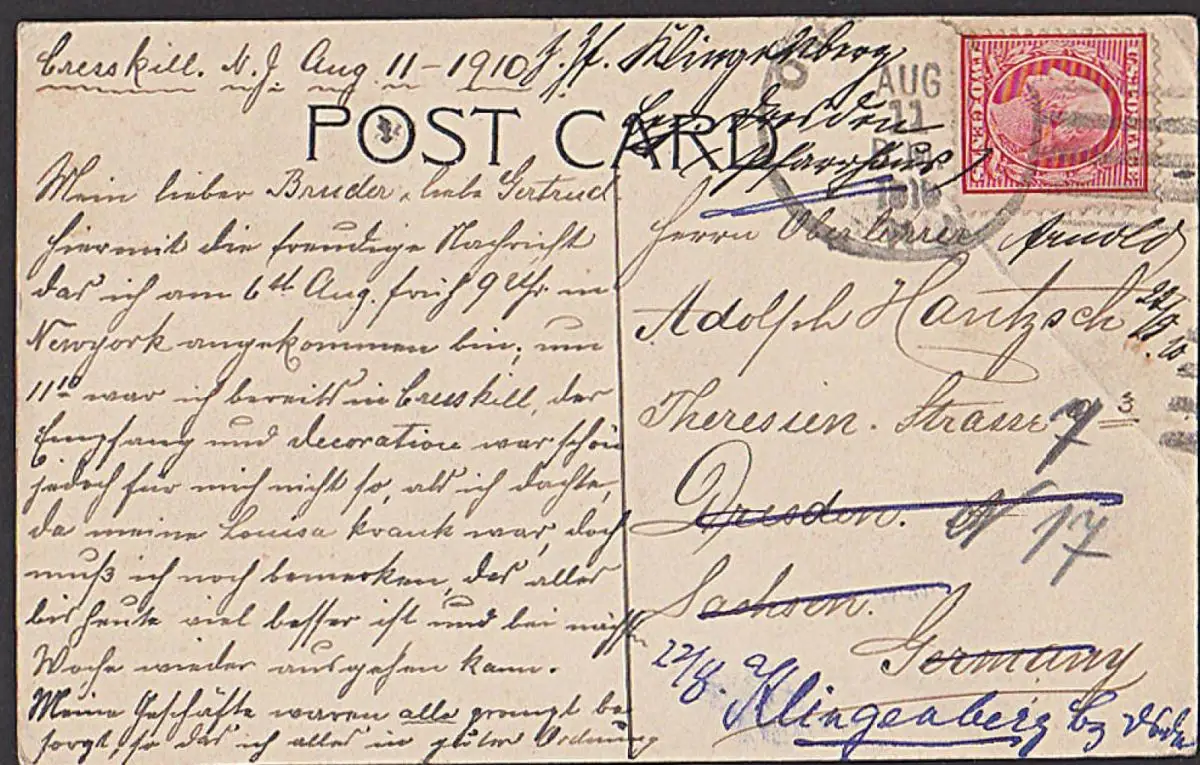 Cresskill. N. J. Aug 11 – 1910
z. Zt. Klingenberg
Bez. Dresden
Pfarrhaus
POST CARD
AUG
11
1910
Mein lieber Bruder u. liebe Gertrud
hiermit die freudige Nachricht
das ich am 6th Aug. früh 9 Uhr in
Newyork angekommen bin, um
11 10 war ich bereits in Cresskill, der
Empfang und decoration war schön
jedoch für mich nicht so, als ich dachte,
da meine Louisa krank war, doch
muß ich noch bemerken, das alles
bis heute viel besser ist und bei nächst
Woche wieder ausgehen kann.
Meine Geschäfte waren alle prompt be-
sorgt, so das ich alles in guter Ordnung
Herrn Oberlehrer Arnold
Adolph Hantzsch
22/8 10
Theresien. Strasse 7 3
Dresden. N 17
Sachsen.
Germany
22/8.
Klingenberg bz Dresden